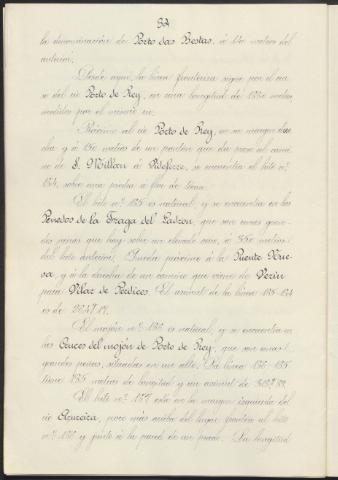 la denominación de Porto das Bestas, á 150 metros del
anterior.
Desde aquí, la línea fronteriza sigue por el cau-
ce del río Porto de Rey, en una longitud de metros
medidos por el mismo río.
Próximo al río Porto de Rey, en su margen dere-
cha y á 150 metros de un pontón que da paso al cami-
no de S. Millán á, se encuentra el hito nº
134, sobre una piedra á flor de tierra.
El hito nº 135 es natural, y se encuentra en los
Penedos de la Fraga del Ladrón, que son unas gran-
des peñas que hay sobre un elevado cerro, á 350 metros
del hito anterior. Queda próximo á la Puente Nue-
va, y á la derecha de un camino que viene de Verín
para Vilar de Perdices. El azimut de la línea 135-134
es de 264º 17'.
El mojón nº 136 es natural, y se encuentra en
las Cruces del mojón de Porto de Rey, que son unas
grandes peñas, situadas en un alto. La línea 136-135
tiene 195 metros de longitud y un azimut de
El hito nº 137 está en la margen izquierda del
río Azureira, poco más arriba del lugar frontero al hito
nº 136 y junto á la pared de un prado. La longitud